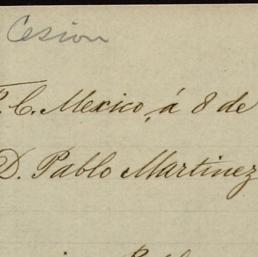 Cesion
C. Mexico, á 8 de
D. Pablo Martinez